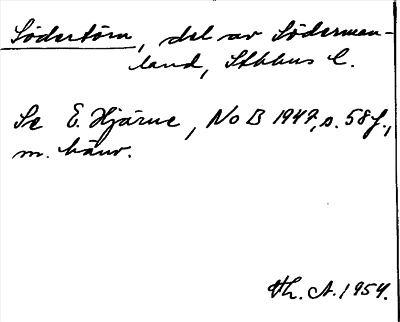 Södertörn, del av Söderman-
land, Sthlms l.
Se E. Hjärne, NoB 1947, s. 58 f.,
m. hänv.
Th. A. 1954.